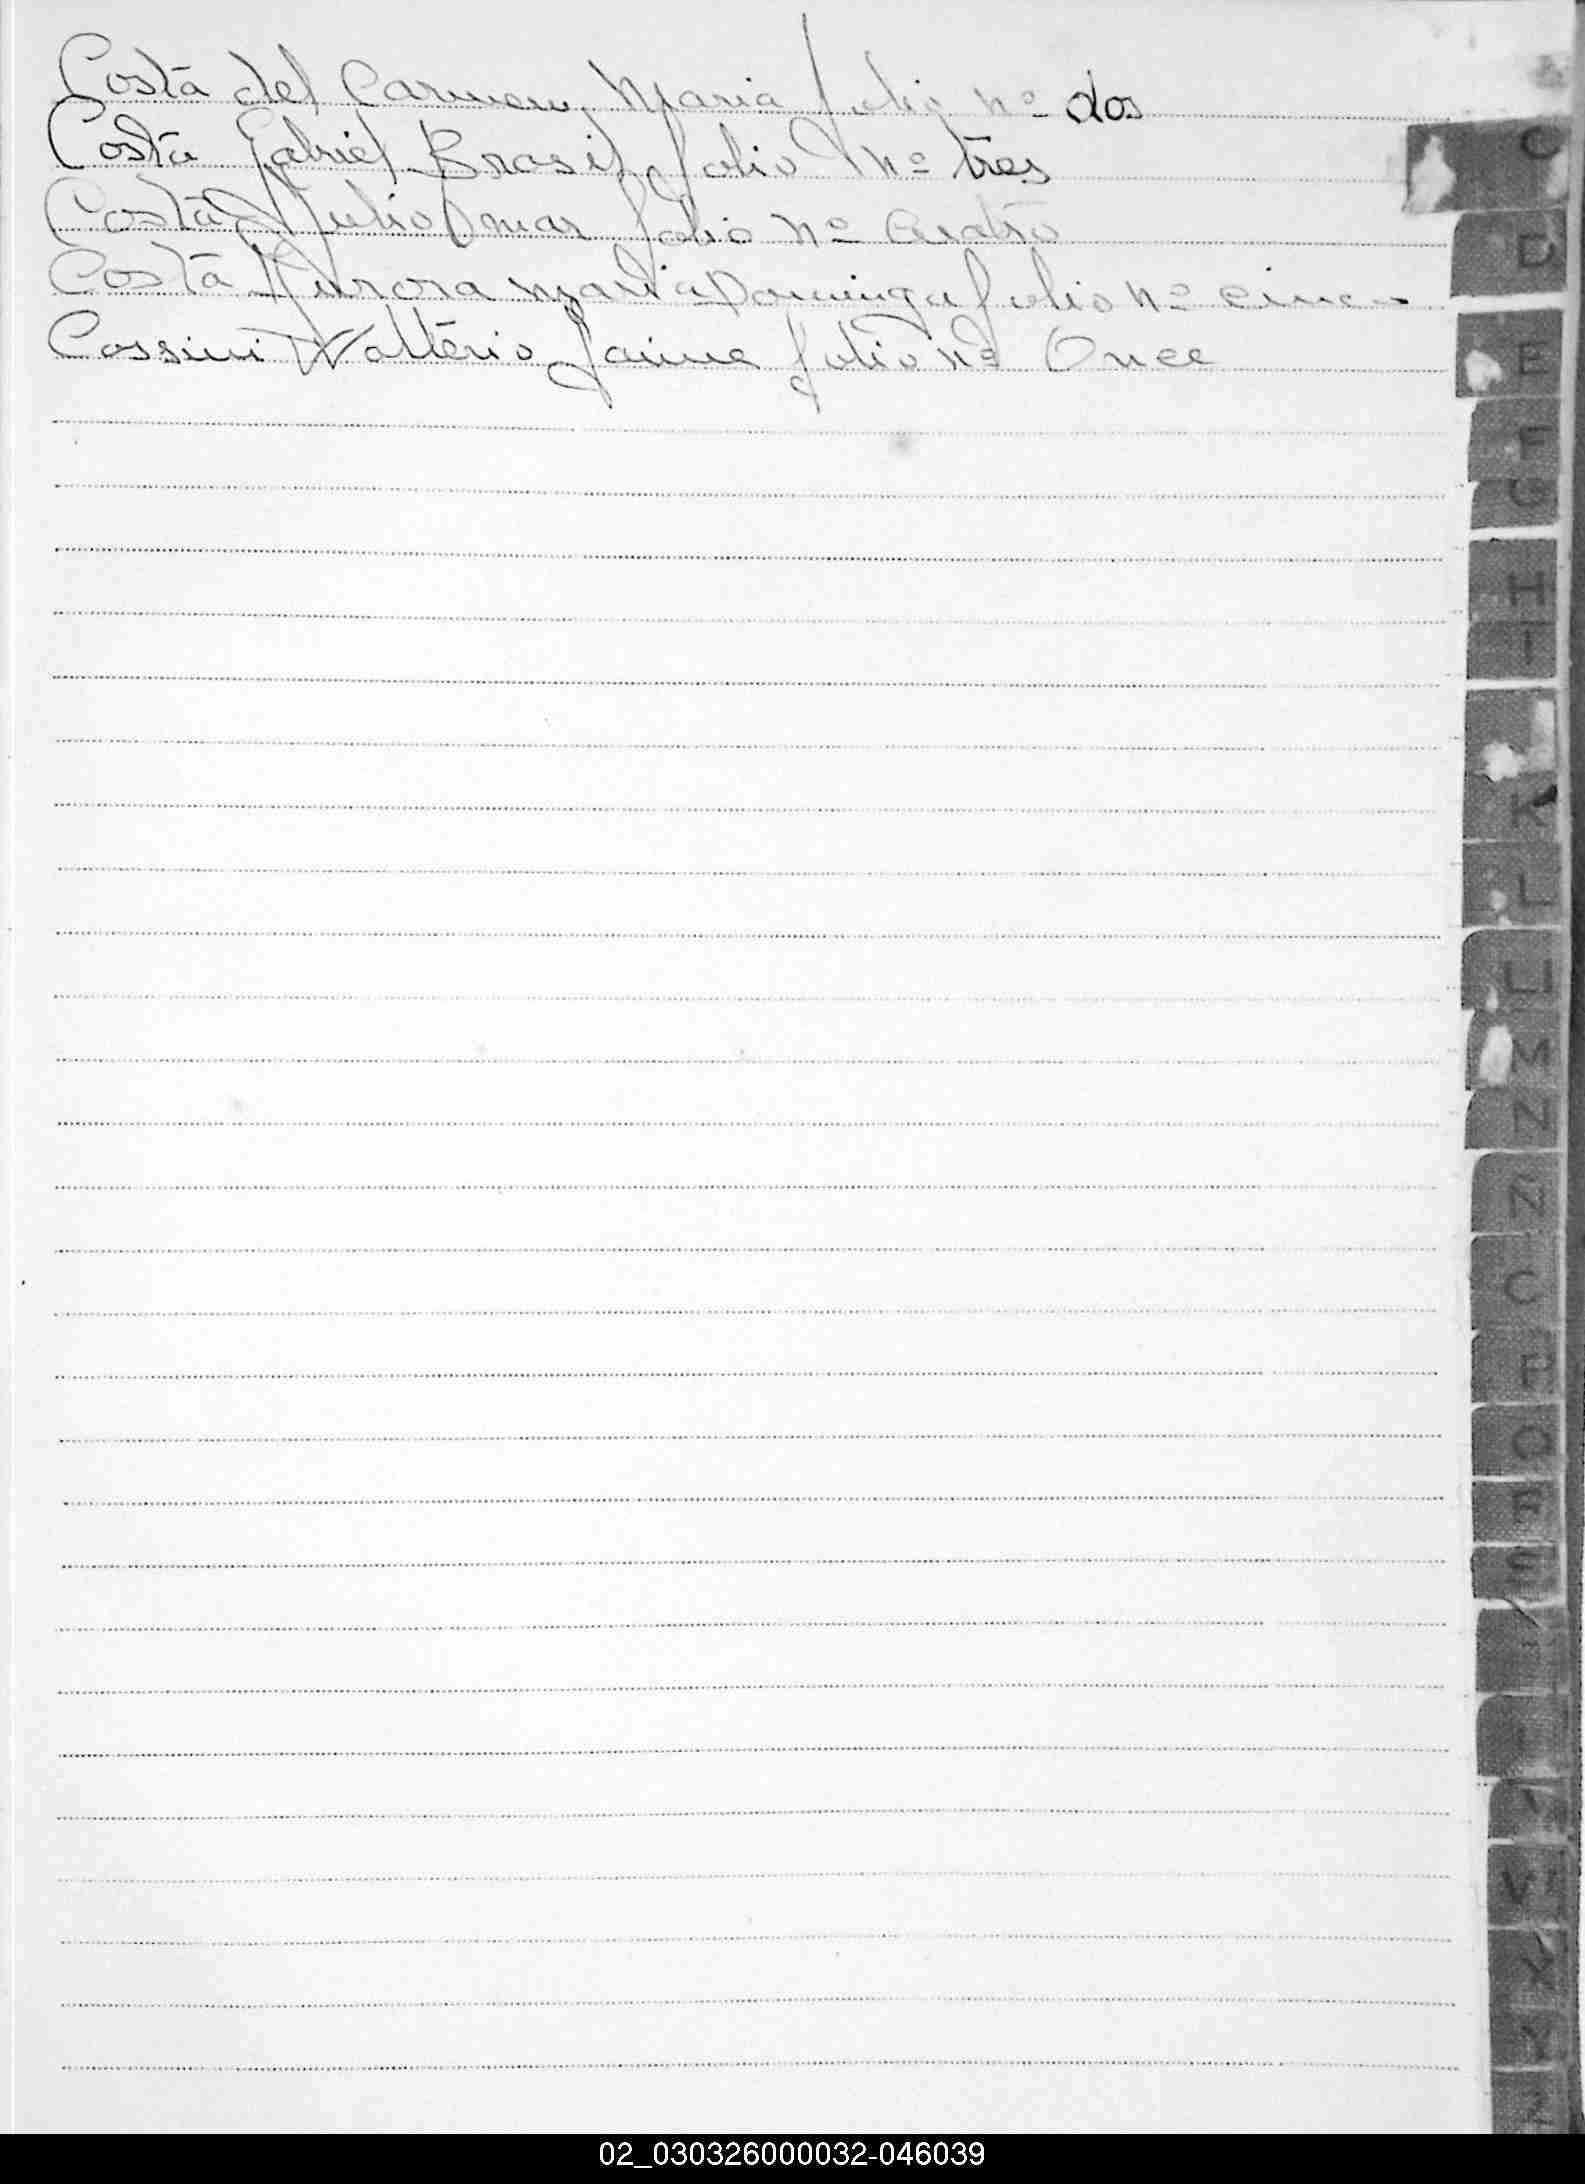 Costa del Carmen, Maria folio nº dos
Costa Gabriel Brasil folio Nº tres
Costa Julio Omar folio nº cuatro
Costa Aurora Maria Dominga folio nº cinco
Cossini Walterio Jaime folio nº Once
C
D
E
F
G
H
I
K
L
LL
M
N
Ñ
P
Q
R
S
V
X
Y
Z
02_030326000032-046039